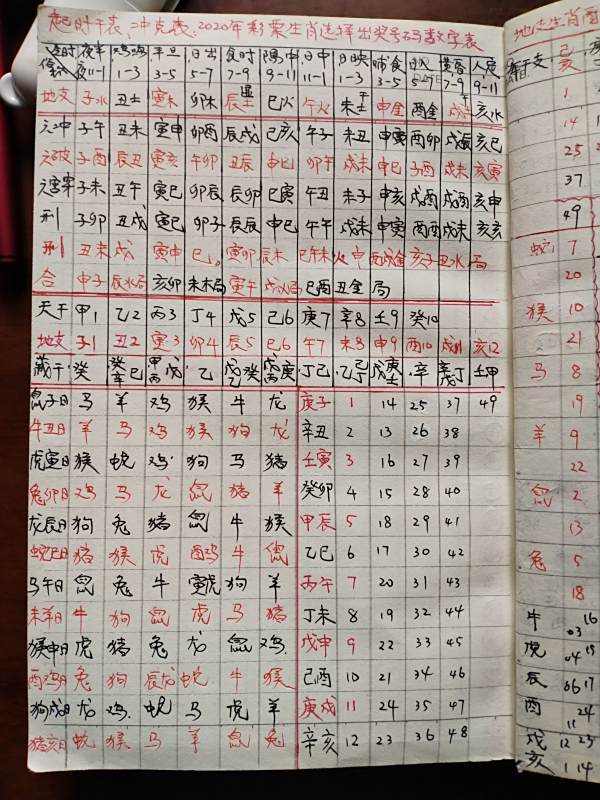 起时干表,冲克表,2020年彩票生肖选择出奖号码数字表
夜半 鸡鸣 平旦 日出 食时 隅中 日中 日映 哺食 日入 黄昏 人定
11-1 1-3 3-5 5-7 7-9 9-11 11-1 1-3 3-5 5-7 7-9 9-11
地支 子水 丑土 寅木 卯木 辰土 巳火 午火 未土 申金 酉金 戌 亥水
六冲 子午 丑未 寅申 卯酉 辰戌 巳亥 午子 未丑 申寅 酉卯 戌辰 亥巳
六破 子酉 辰丑 寅亥 午卯 丑辰 申巳 卯午 戌未 申巳 子酉 戌未 亥寅
六穿 子未 丑午 寅巳 卯辰 辰卯 巳寅 午丑 未子 申亥 戌酉 戌酉 亥申
刑 子卯 丑戌 寅巳 卯子 辰辰 申巳 午午 戌未 申寅 酉酉 戌未 亥亥
刑 丑未 戌 寅申 巳。 寅卯 辰木 巳午未火 申 酉戌金 亥子 丑水 局
合 申子 辰水局 亥卯 未木局 寅午 戌火局 巳酉 丑金 局
天干 甲1 乙2 丙3 丁4 戊5 己6 庚7 辛8 壬9 癸10
地支 子1 丑2 寅3 卯4 辰5 巳6 午7 未8 申9 酉10 戌11 亥12
藏干 癸 癸辛己 甲丙戊 乙 戊乙癸 戊丙庚 丁己 乙己丁 戊庚壬 辛 辛戊丁 壬甲
鼠子日 马 羊 鸡 猴 牛 龙 庚子 1 14 25 37 49
牛丑日 羊 马 鸡 猴 狗 龙 辛丑 2 13 26 38
虎寅日 猴 蛇 鸡 狗 马 猪 壬寅 3 16 27 39
兔卯日 鸡 马 龙 鼠 猪 羊 癸卯 4 15 28 40
龙辰日 狗 兔 猪 鼠 牛 猴 甲辰 5 18 29 41
蛇巳日 猪 猴 虎 酉鸡 牛 鼠 乙巳 6 17 30 42
马午日 鼠 兔 牛 寅虎 狗 羊 丙午 7 20 31 43
未羊日 牛 狗 鼠 虎 马 猪 丁未 8 19 32 44
猴申日 虎 猪 兔 龙 鼠 鸡 戊申 9 22 33 45
酉鸡日 兔 狗 辰龙 蛇 牛 猴 己酉 10 21 34 46
狗戌日 龙 鸡 蛇 马 虎 羊 庚戌 11 24 35 47
猪亥日 蛇 猴 马 羊 鼠 兔 辛亥 12 23 36 48
地支生肖
1
14
25
37
49
蛇 7
20
猴 10
21
马 8
19
羊 9
22
鼠 2
13
兔 5
18
牛 03 16
虎 04 15
辰 06 17
酉 11 24
戌 12 23
亥 1 14